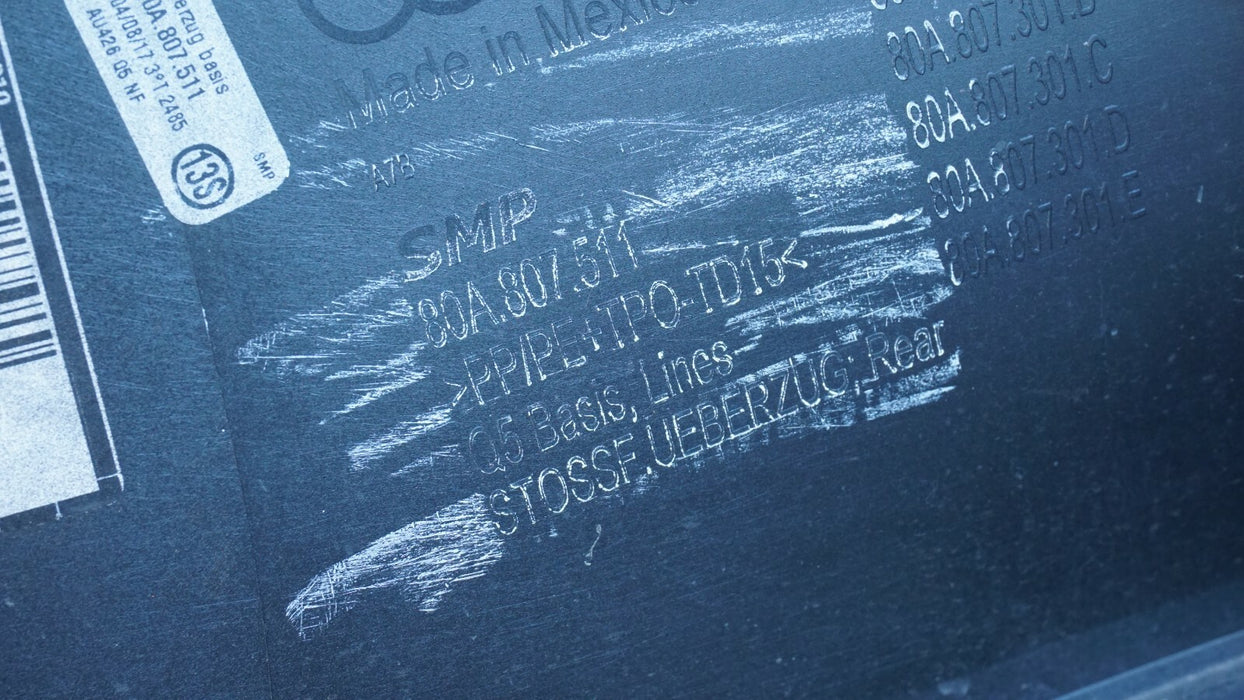 erzug basis
0A.807.511
04/08/17 3ºT 2485
AU426 Q5 NF
13S
SMP
Made in Mexico
A73
SMP
80A.807.511
>PP/PE+TPO-TD15<
Q5 Basis, Lines
STOSSF.UEBERZUG; Rear
80A.807.301.B
80A.807.301.C
80A.807.301.D
80A.807.301.E